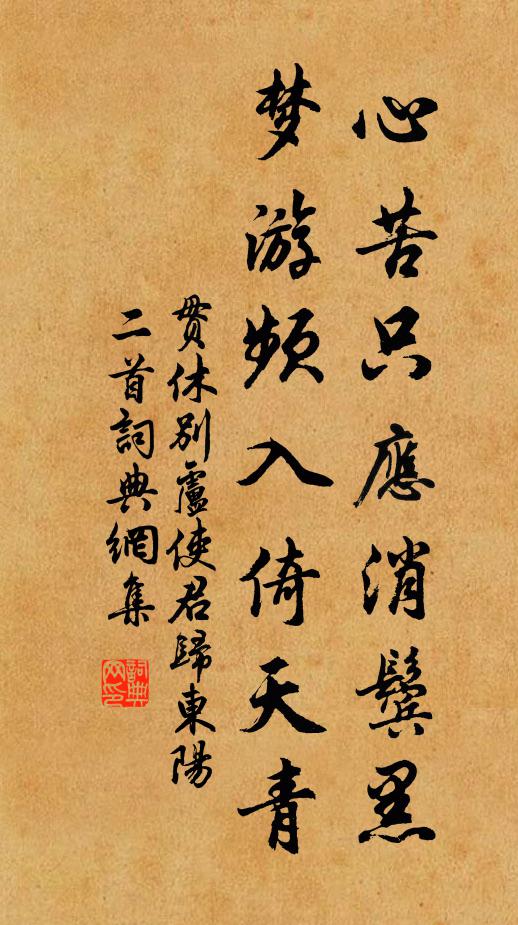 心苦只應消鬢黑
梦游频入倚天青
貫休別盧使君歸東陽
二首詞典網集
詞典
网印